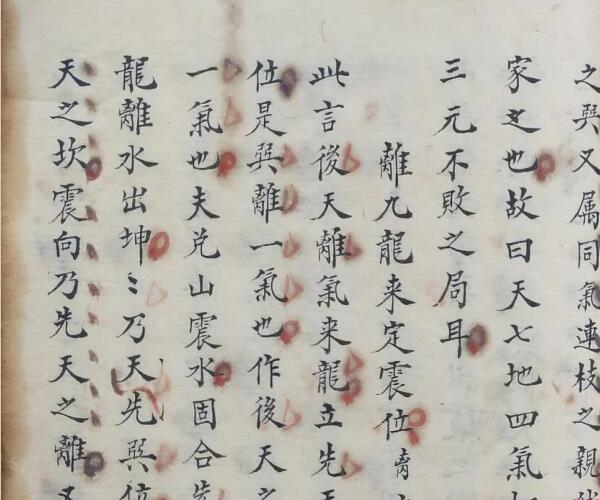 之與又属同氣連枝之親
家之也故曰天七地四氣
三元不敗之局耳
離九龍来定震位
此言後天離氣来龍立先天
位是與離一氣也作後天之
一氣也夫兑山震水固合先
龍離水出坤〻乃天先與位
天之坎震向乃先天之離又